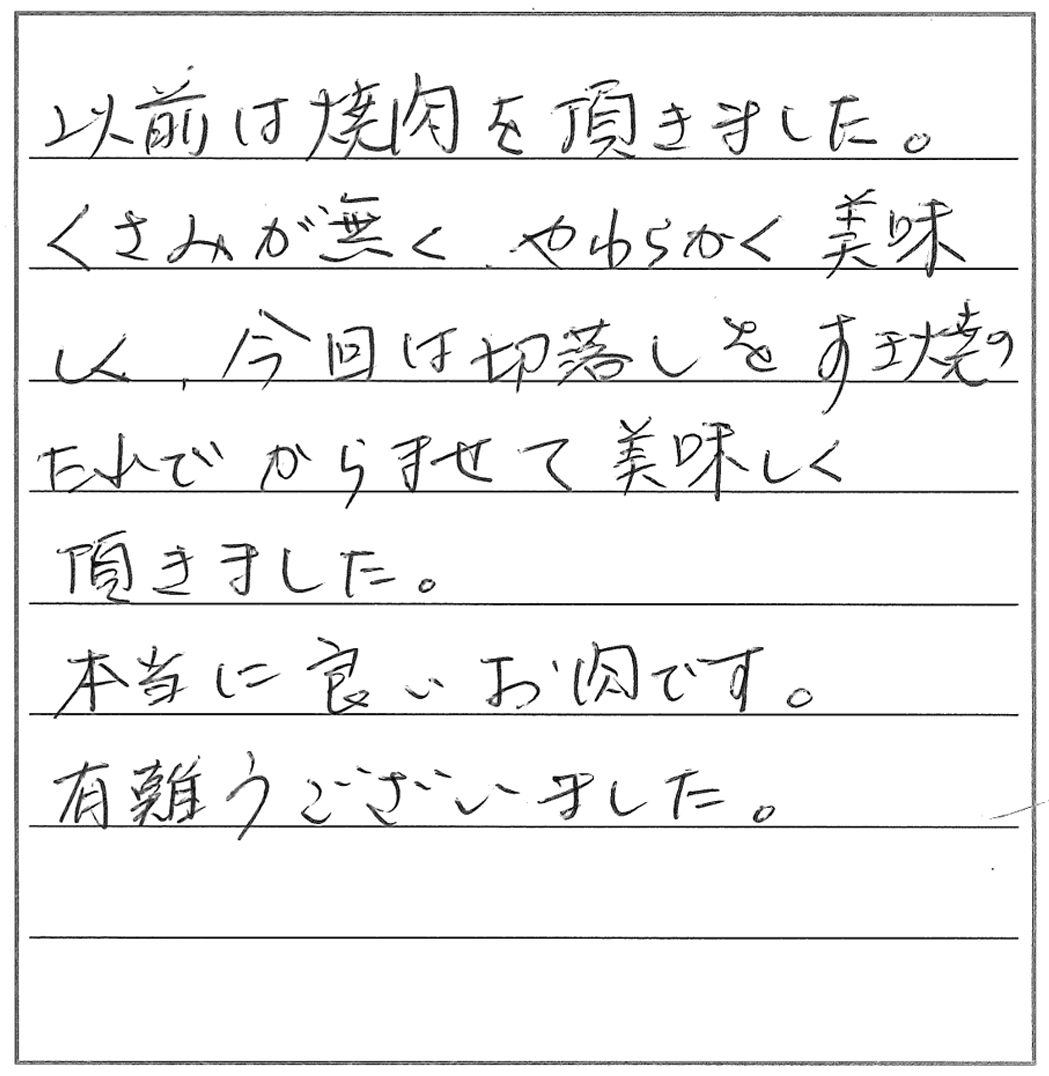 以前は焼肉を頂きました。
くさみが無く、やわらかく美味
しく、今回は切落しをすき焼の
たれでからませて美味しく
頂きました。
本当に良いお肉です。
有難うございました。